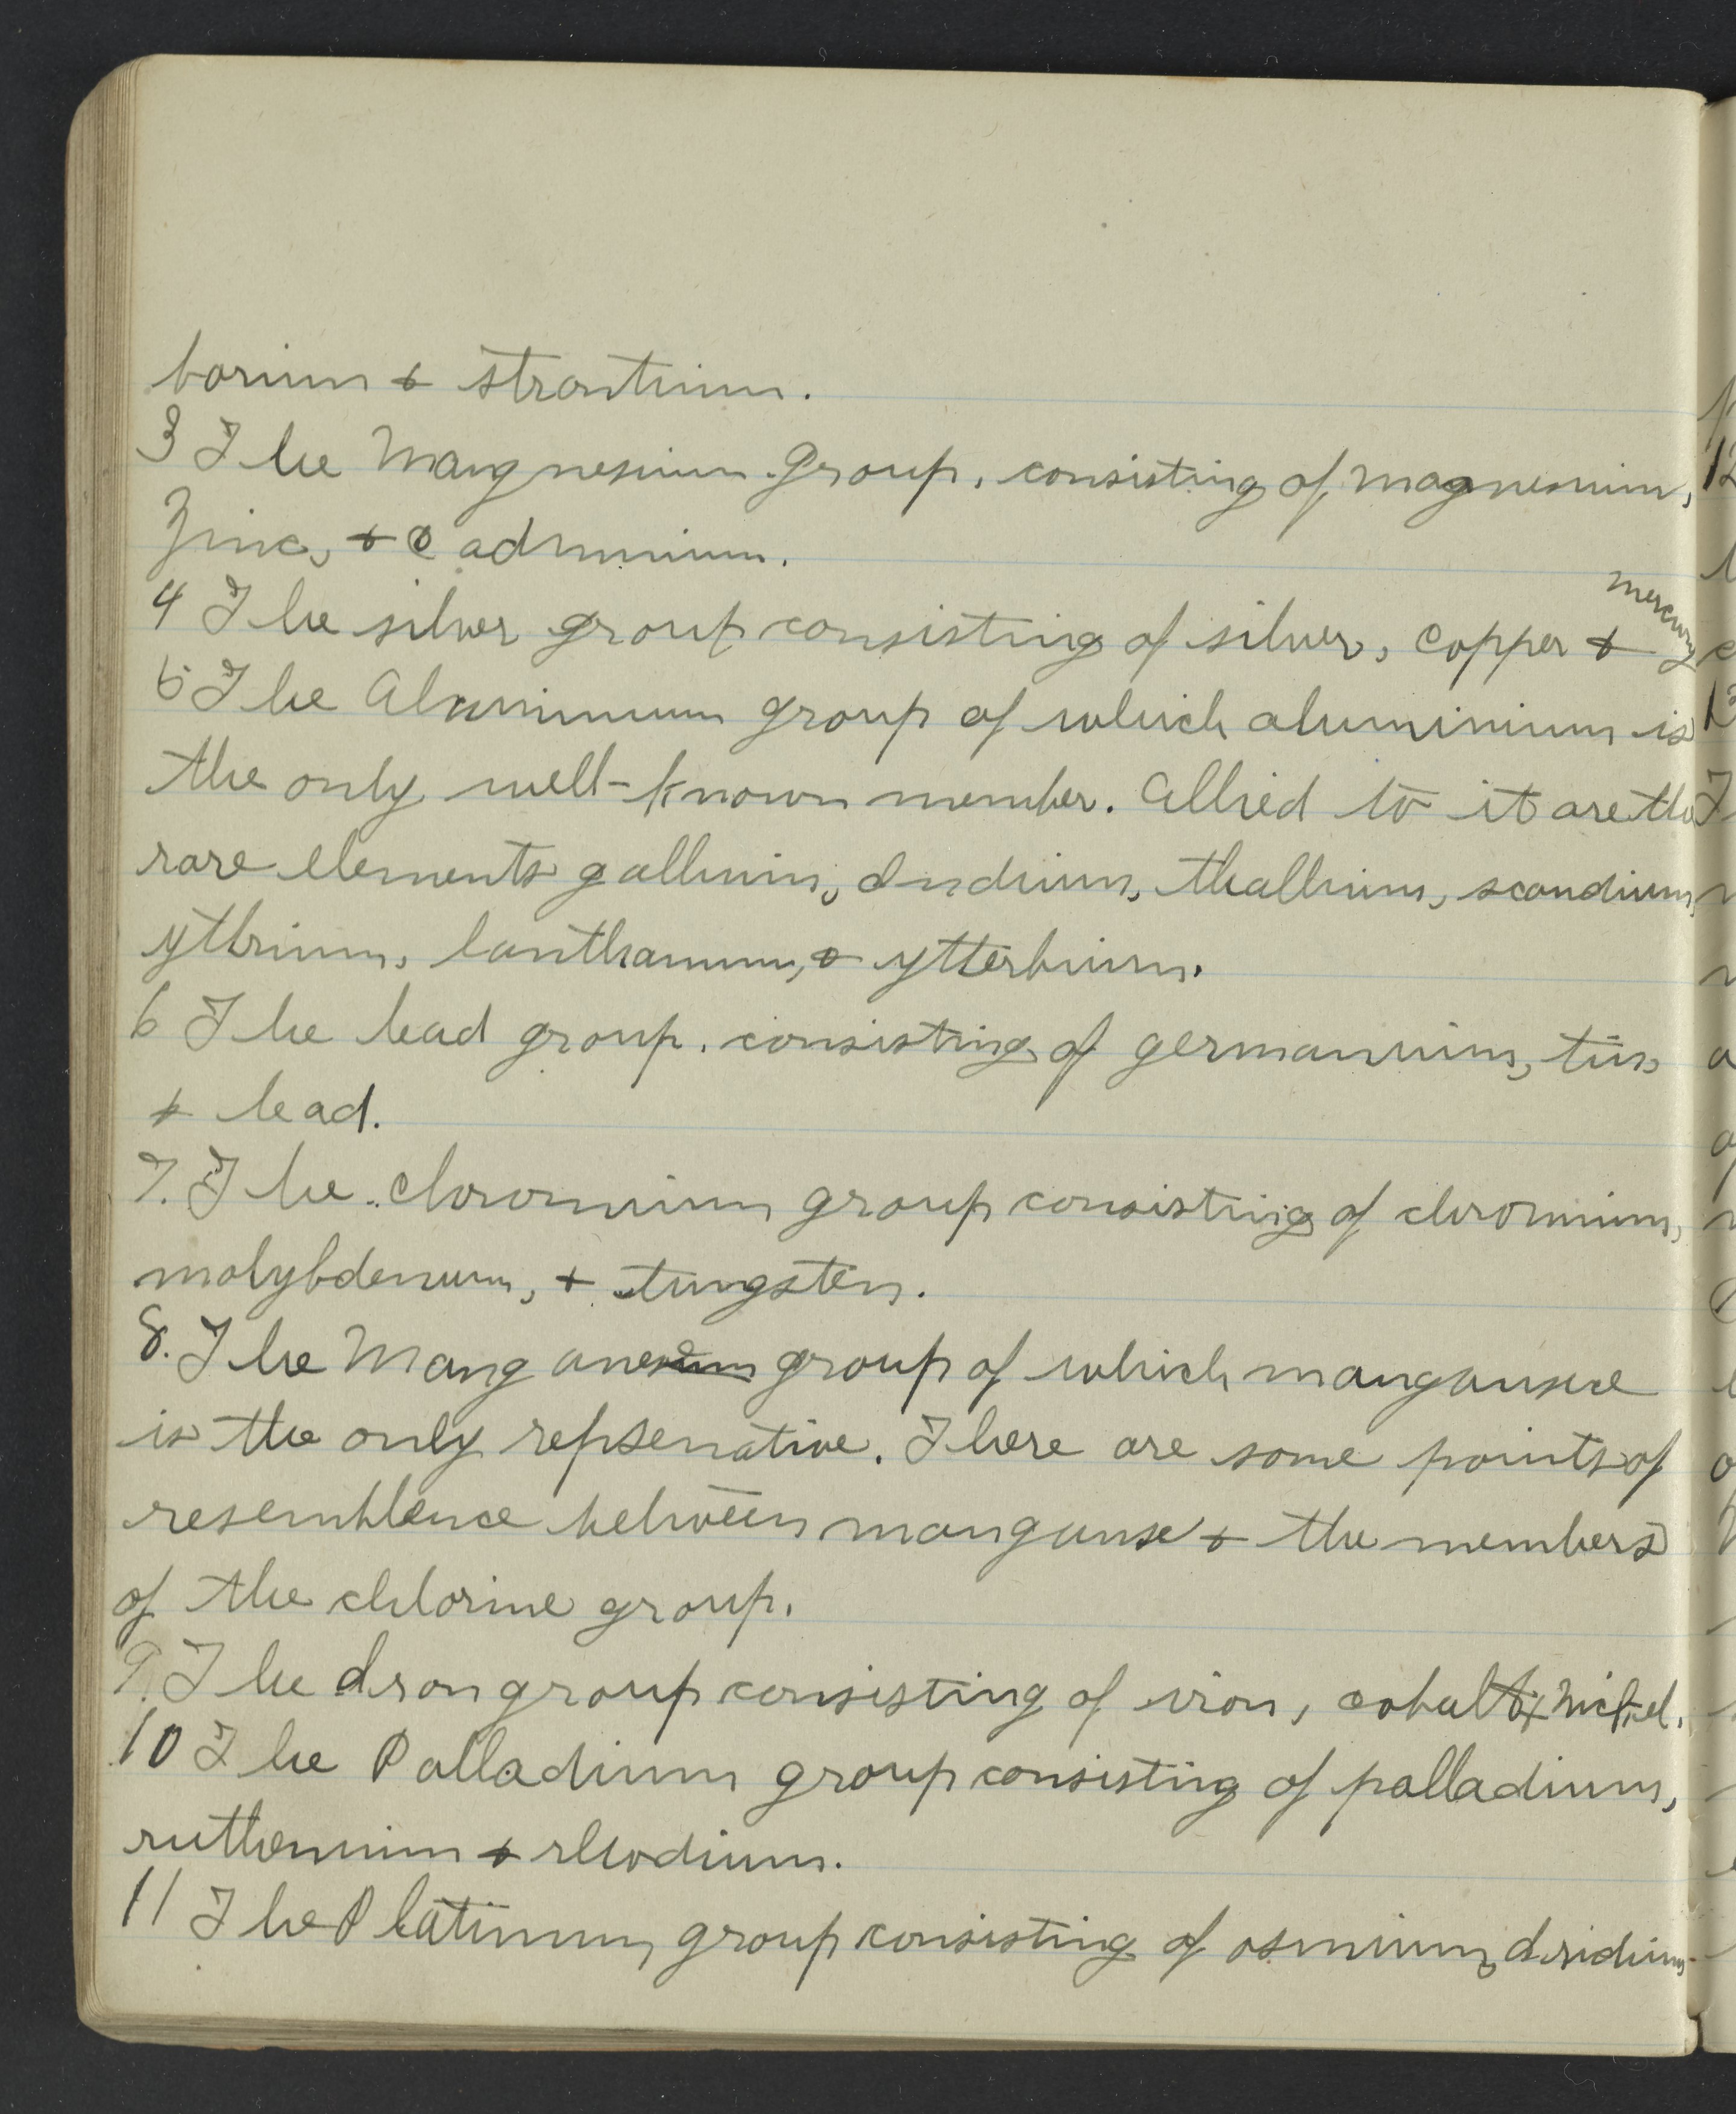 barium & strontium.
3 The Mangnesium Group, consisting of magnesium,
Zinc, & Cadmmium.
4 The silver group consisting of silver, copper & mercury
5 The Aluminium group of which aluminium is
the only well-known member. Allied to it are the
rare elements gallium, Indium, thallium, scandium,
yttrium, lanthanum, & ytterbium.
6 The lead group, consisting of germanium, tin,
& lead.
7. The Chromium group consisting of chromium,
molybdenum, & tungsten.
8. The Manganese group of which manganese
is the only repsenative. There are some points of
resemblence between manganse & the members
of the chlorine group.
9. The Iron group consisting of iron, cobalt & Nickel.
10 The Palladium group consisting of palladium,
ruthenium & rhodium.
11 The Platinum group consisting of osmium, Iridium